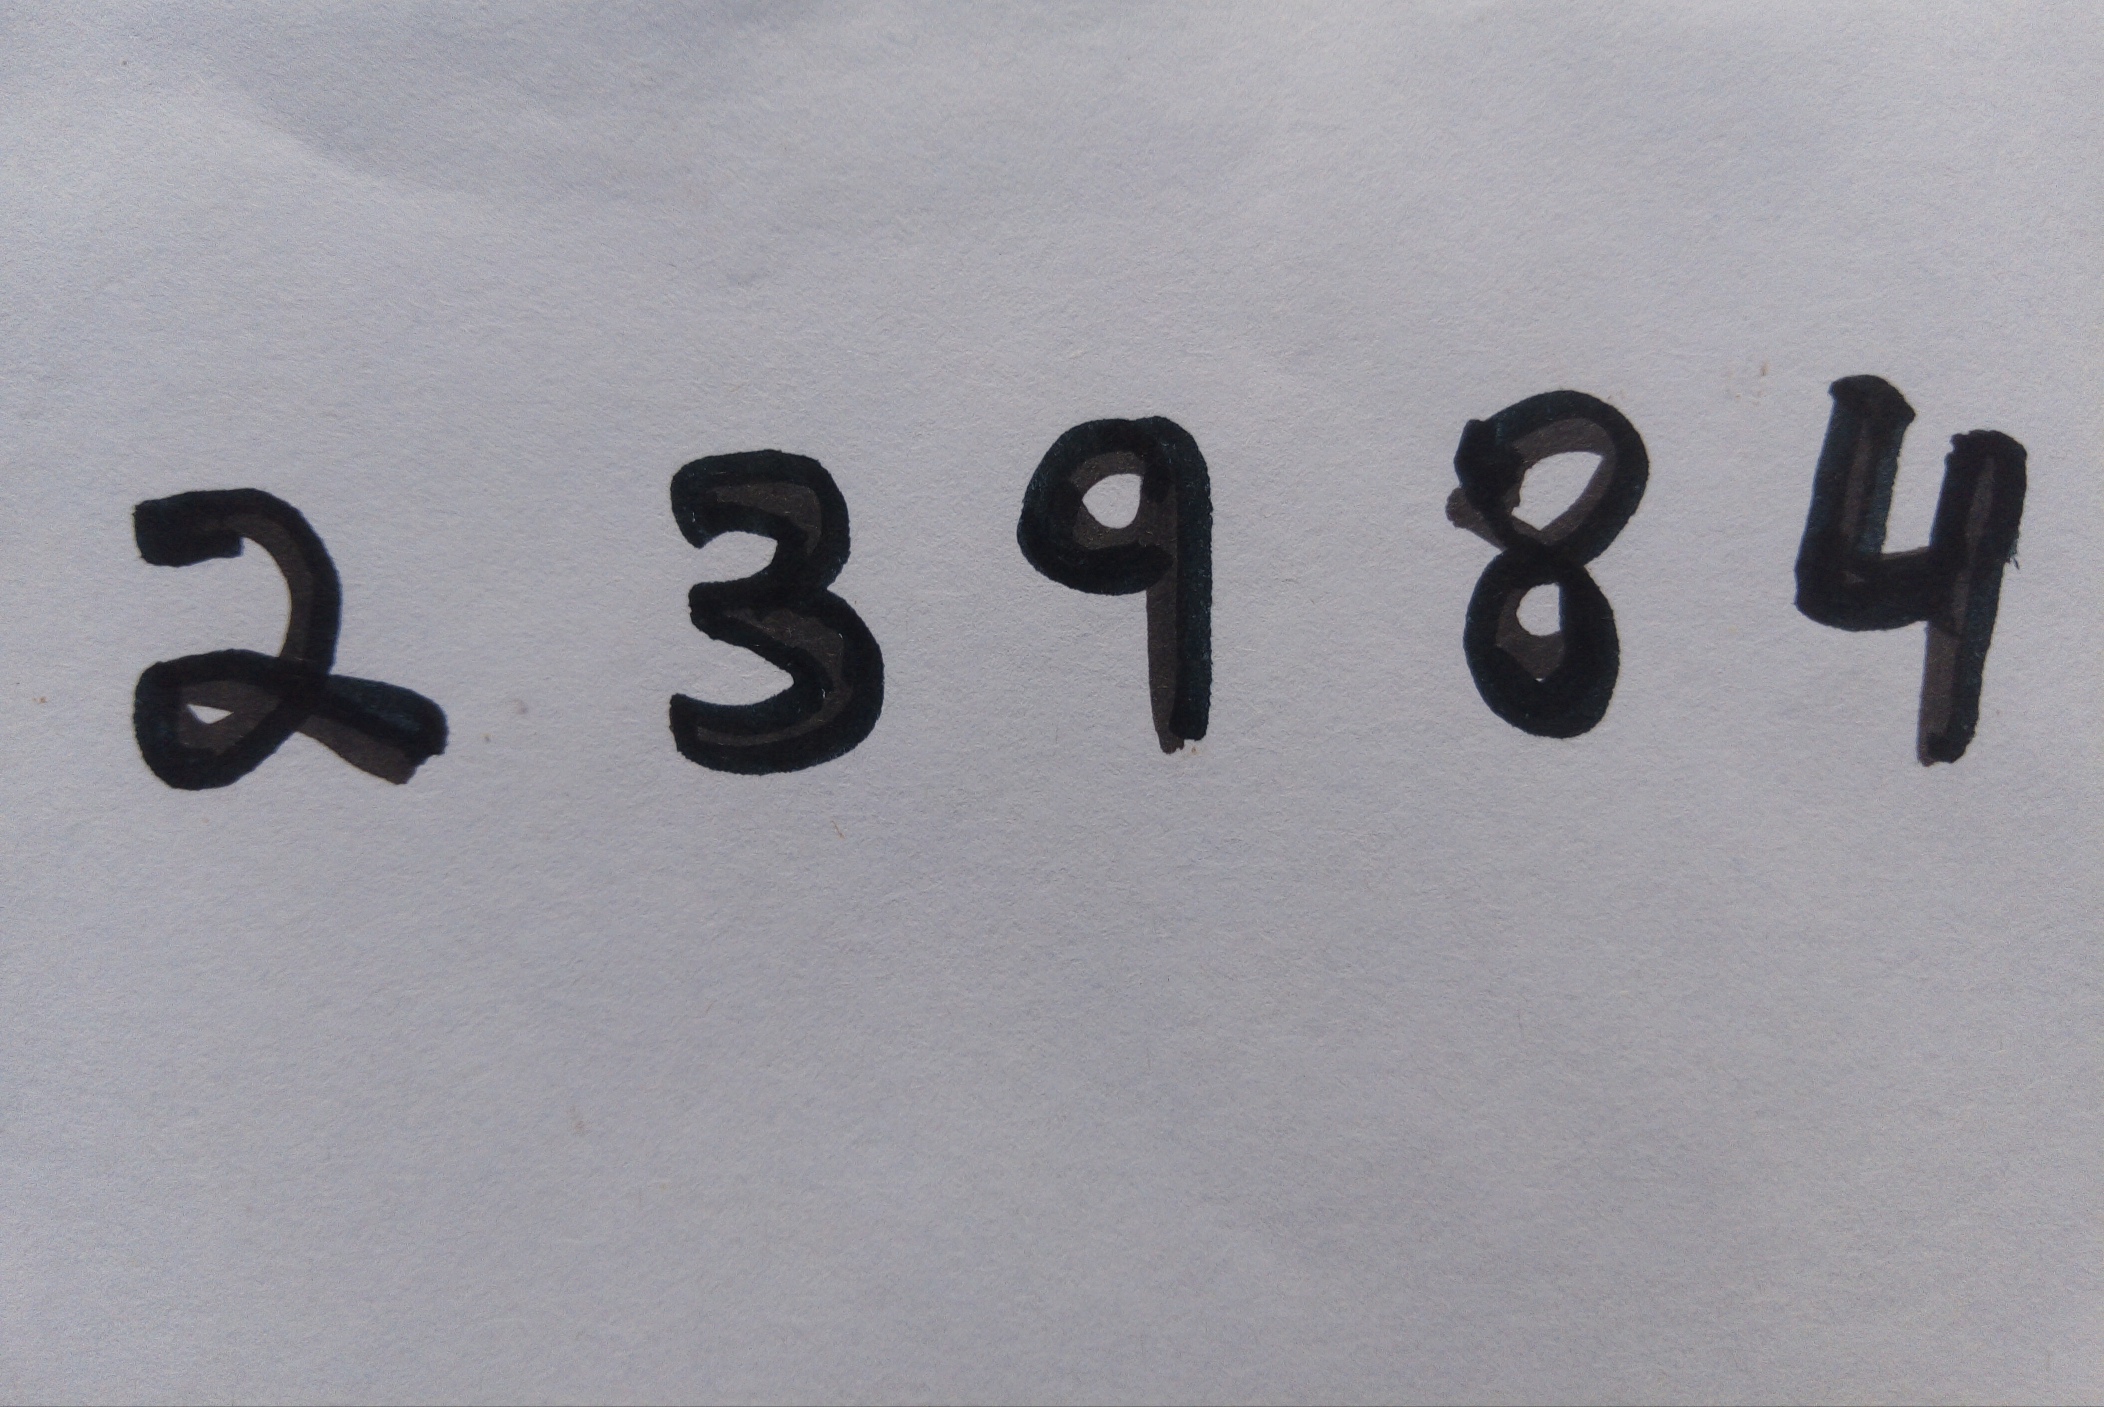 2 3 9 8 4